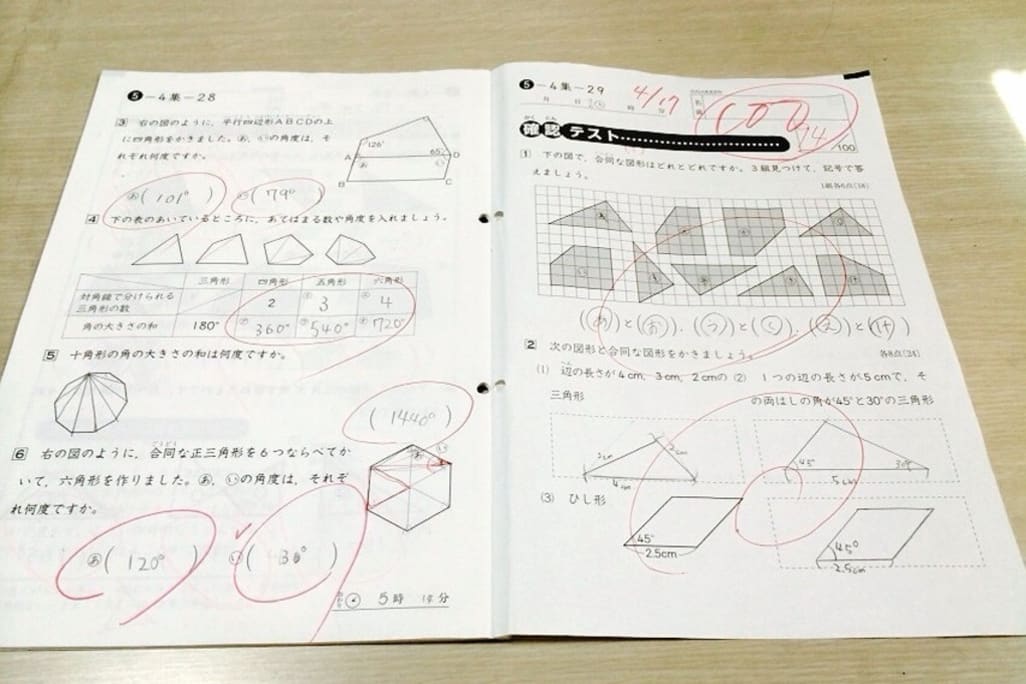 5-4集-28
3 右の図のように，平行四辺形ABCDの上
に四角形をかきました。あ，いの角度は，そ
れぞれ何度ですか。
126°
65°
A
D
あ
い
B
C
あ(101°)
い(79°)
4 下の表のあいているところに，あてはまる数や角度を入れましょう。
三角形 四角形 五角形 六角形
対角線で分けられる
三角形の数
2 3 4
角の大きさの和 180° 360° 540° 720°
5 十角形の角の大きさの和は何度ですか。
(1440°)
6 右の図のように，合同な正三角形を6つならべてか
いて，六角形を作りました。あ，いの角度は，それぞ
れ何度ですか。
あ(120°)
い(30°)
5時 分
5-4集-29
月 日 時 分
4/17
100
94
/100
かくにん
確認テスト
1 下の図で，合同な図形はどれとどれですか。3組見つけて，記号で答
えましょう。
(あ)と(お)，(う)と(く)，(え)と(け)
2 次の図形と合同な図形をかきましょう。
各8点(24)
(1) 辺の長さが4cm，3cm，2cmの
三角形
3cm
2cm
4cm
(2) 1つの辺の長さが5cmで，そ
の両はしの角が45°と30°の三角形
45°
30°
5cm
(3) ひし形
45°
2.5cm
45°
2.5cm